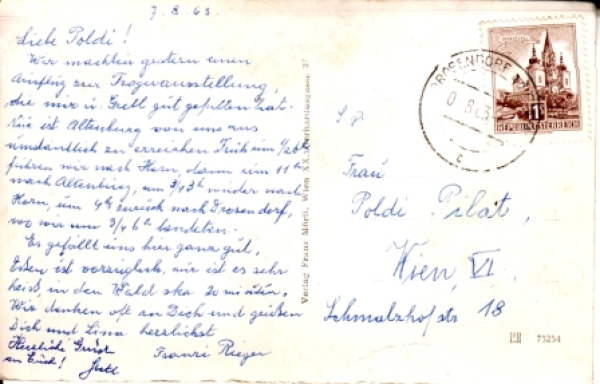 7.8.63
Liebe Poldi!
Wir machten gestern einen
Ausflug zur Trogerausstellung,
die mir u. Gretl gut gefallen hat.
Nur ist Altenburg von uns aus
umständlich zu erreichen. Früh um 1/2 8h
fuhren wir nach Horn, dann um 11h
nach Altenburg, um 3/4 3h wieder nach
Horn, um 4h zurück nach Drosendorf,
wo wir um 3/4 6h landeten.
Es gefällt uns hier ganz gut,
Essen ist vorzüglich, nur ist es sehr
heiß in den Wald zka. 20 minuten.
Wir denken oft an Dich und grüßen
Dich und Lina herzlichst
Franzi Rieger
Herzliche Grüße
an Euch! Gretl
Verlag Franz Mörtl, Wien XX, Gerhardusgasse 27
DROSENDORF
REPUBLIK ÖSTERREICH
S 1
Frau
Poldi Pilat,
Wien, VI.
Schmalzhofstr 18
73254